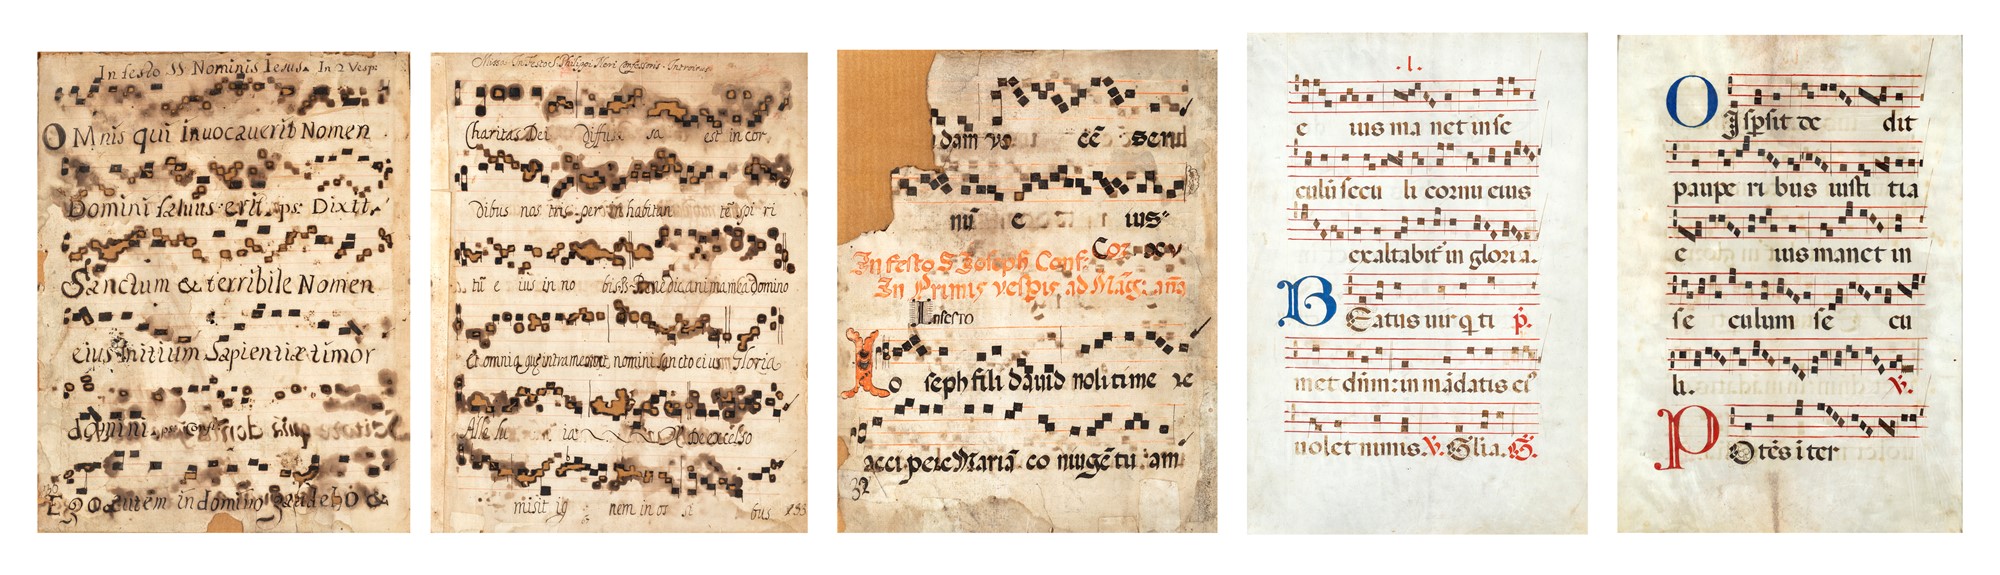 In festo SS Nominis Iesus. In 2 Vesp:
OMnis qui invocaverit Nomen
Domini salvus erit. ps. Dixit.
Sanctum & terribile Nomen
eius initium Sapientiæ timor
domini
Ego autem in domino gaudebo &
Missa In Festo S. Philippi Neri Confessoris. Introitus
Charitas Dei diffu sa est in cor
dibus nos tris per inhabitan tẽ spi ri
tũ e ius in no bis. Ps. Benedic anima mea domino
et omnia quæ intra me sunt nomini sancto eius Gloria
Alle lu ia De excelso
misit ig nem in os si bus
dam vo eẽ serui
nũ e ius
In festo S Joseph Conf.
In Primis vesp̃is ad Mãg: añã
In festo
Io seph fili dauid noli time re
accipere Mariã co niugẽ tu am
32
.I.
e ius ma net in se
culũ secu li cornu eius
exaltabit̃ in gloria.
Beatus uir q ti p̃.
met dñm: in mãdatis ei9
uolet nimis. V. Glia.
DIspsit de dit
paupe ri bus iusti tia
e ius manet in
se culum se cu
li. V.
POtẽs i ter